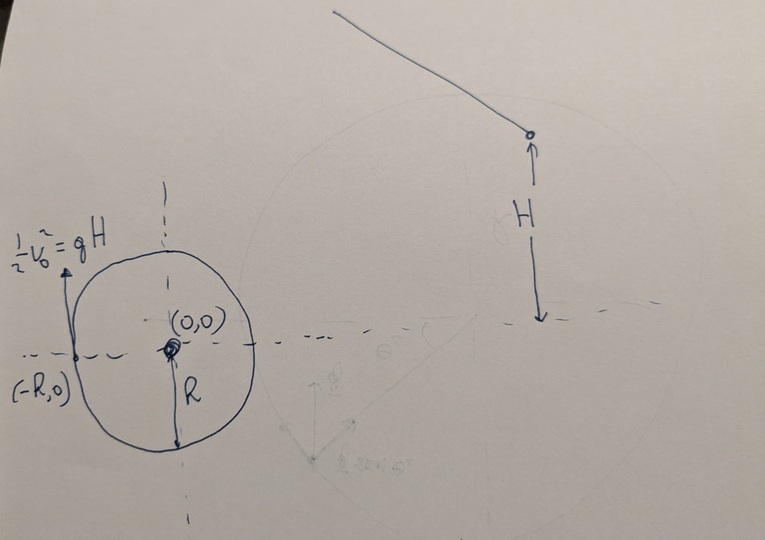 ½v₀² = gH
(0,0)
H
(-R,0)
R